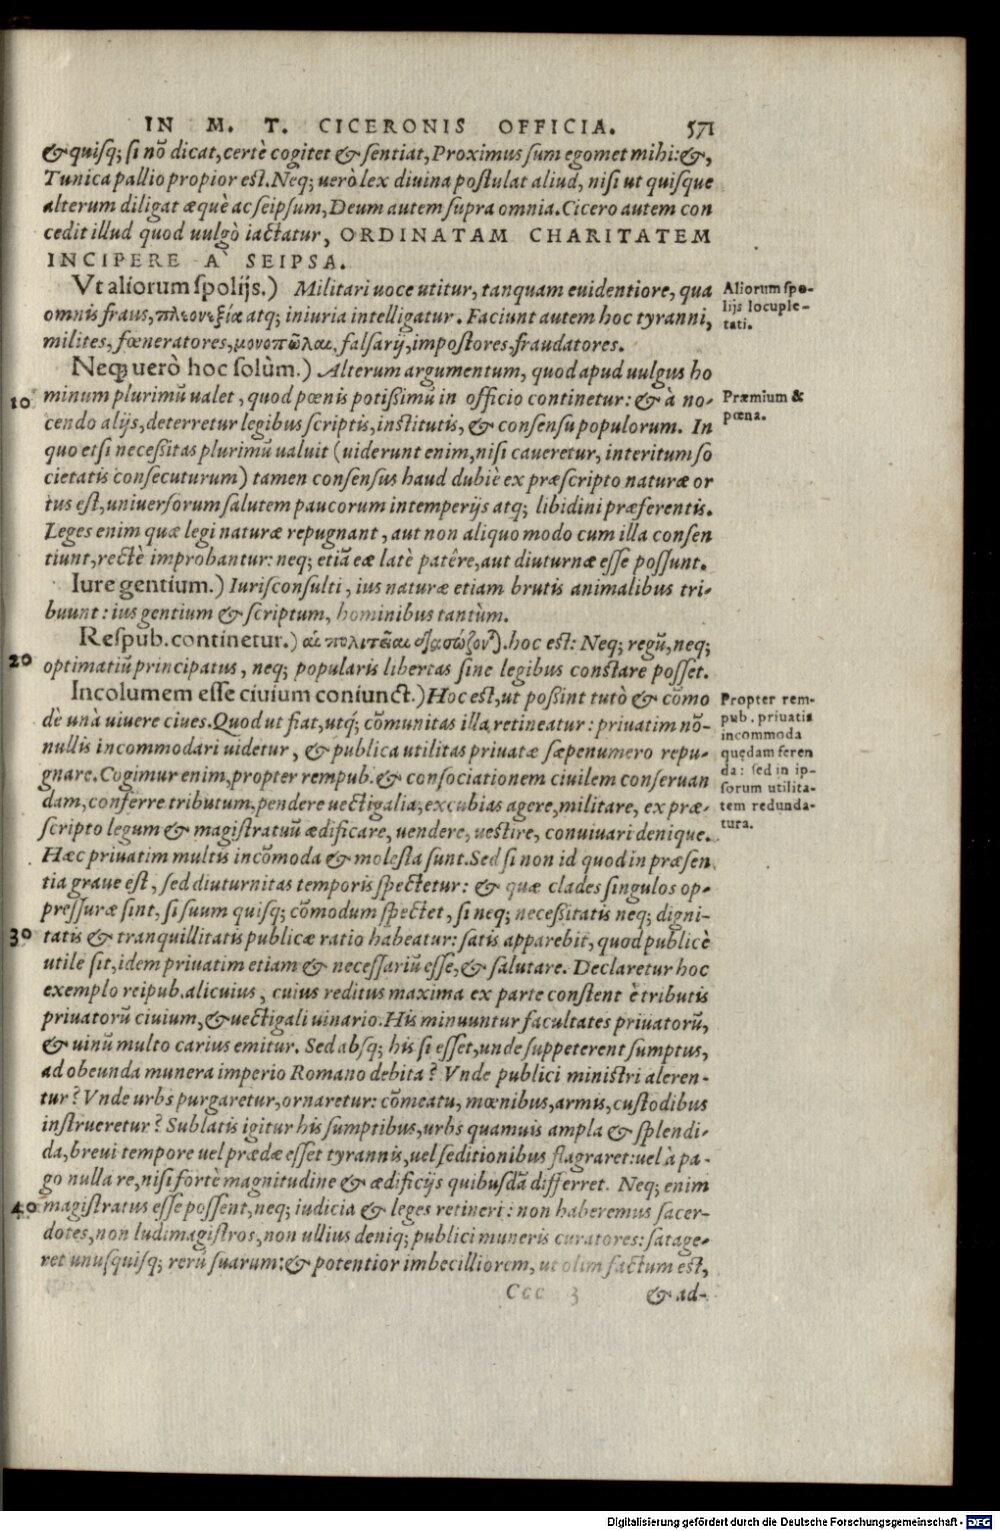 IN M. T. CICERONIS OFFICIA. 571
& quisq; si nõ dicat, certè cogitet & sentiat, Proximus sum egomet mihi: &,
Tunica pallio propior est. Neq; uerò lex diuina postulat aliud, nisi ut quisque
alterum diligat æquè ac seipsum, Deum autem supra omnia. Cicero autem con
cedit illud quod uulgò iactatur, ORDINATAM CHARITATEM
INCIPERE A` SEIPSA.
Vt aliorum spolijs.) Militari uoce utitur, tanquam euidentiore, qua
omnis fraus, πλεονεξία atq; iniuria intelligatur. Faciunt autem hoc tyranni,
milites, fœneratores, μονοπῶλαι, falsarij, impostores, fraudatores.
Aliorum spo-
lijs locuple-
tati.
Neq; uerò hoc solùm.) Alterum argumentum, quod apud uulgus ho
10 minum plurimũ ualet, quod pœnis potißimũ in officio continetur: & à no-
cendo alijs, deterretur legibus scriptis, institutis, & consensu populorum. In
quo etsi neceßitas plurimũ ualuit (uiderunt enim, nisi caueretur, interitum so
cietatis consecuturum) tamen consensus haud dubiè ex præscripto naturæ or
tus est, uniuersorum salutem paucorum intemperijs atq; libidini præferentis.
Leges enim quæ legi naturæ repugnant, aut non aliquo modo cum illa consen
tiunt, rectè improbantur: neq; etiã eæ latè patêre, aut diuturnæ esse possunt.
Præmium &
pœna.
Iure gentium.) Iurisconsulti, ius naturæ etiam brutis animalibus tri-
buunt: ius gentium & scriptum, hominibus tantùm.
Respub. continetur.) αἱ πολιτεῖαι διασώζοντ). hoc est: Neq; regũ, neq;
20 optimatiũ principatus, neq; popularis libertas sine legibus constare posset.
Incolumem esse ciuium coniunct.) Hoc est, ut poßint tutò & cõmo
dè unà uiuere ciues. Quod ut fiat, utq; cõmunitas illa retineatur: priuatim nõ-
nullis incommodari uidetur, & publica utilitas priuatæ sæpenumero repu-
gnare. Cogimur enim, propter rempub. & consociationem ciuilem conseruan
dam, conferre tributum, pendere uectigalia, excubias agere, militare, ex præ-
scripto legum & magistratuũ ædificare, uendere, uestire, conuiuari denique.
Hæc priuatim multis incõmoda & molesta sunt. Sed si non id quod in præsen
tia graue est, sed diuturnitas temporis spectetur: & quæ clades singulos op-
pressuræ sint, si suum quisq; cõmodum spectet, si neq; neceßitatis neq; digni-
30 tatis & tranquillitatis publicæ ratio habeatur: satis apparebit, quod publicè
utile sit, idem priuatim etiam & necessariũ esse, & salutare. Declaretur hoc
exemplo reipub. alicuius, cuius reditus maxima ex parte constent è tributis
priuatorũ ciuium, & uectigali uinario. His minuuntur facultates priuatorũ,
& uinũ multo carius emitur. Sed absq; his si esset, unde suppeterent sumptus,
ad obeunda munera imperio Romano debita? Vnde publici ministri aleren-
tur? Vnde urbs purgaretur, ornaretur: cõmeatu, mœnibus, armis, custodibus
instrueretur? Sublatis igitur his sumptibus, urbs quamuis ampla & splendi-
da, breui tempore uel prædæ esset tyrannis, uel seditionibus flagraret: uel à pa-
go nulla re, nisi fortè magnitudine & ædificijs quibusdã differret. Neq; enim
40 magistratus esse possent, neq; iudicia & leges retineri: non haberemus sacer-
dotes, non ludimagistros, non ullius deniq; publici muneris curatores: satage-
ret unusquisq; rerũ suarum: & potentior imbecilliorem, ut olim factum est,
Propter rem-
pub. priuatis
incommoda
quędam feren
da: sed in ip-
sorum utilita-
tem redunda-
tura.
Ccc 3 & ad-
Digitalisierung gefördert durch die Deutsche Forschungsgemeinschaft - DFG